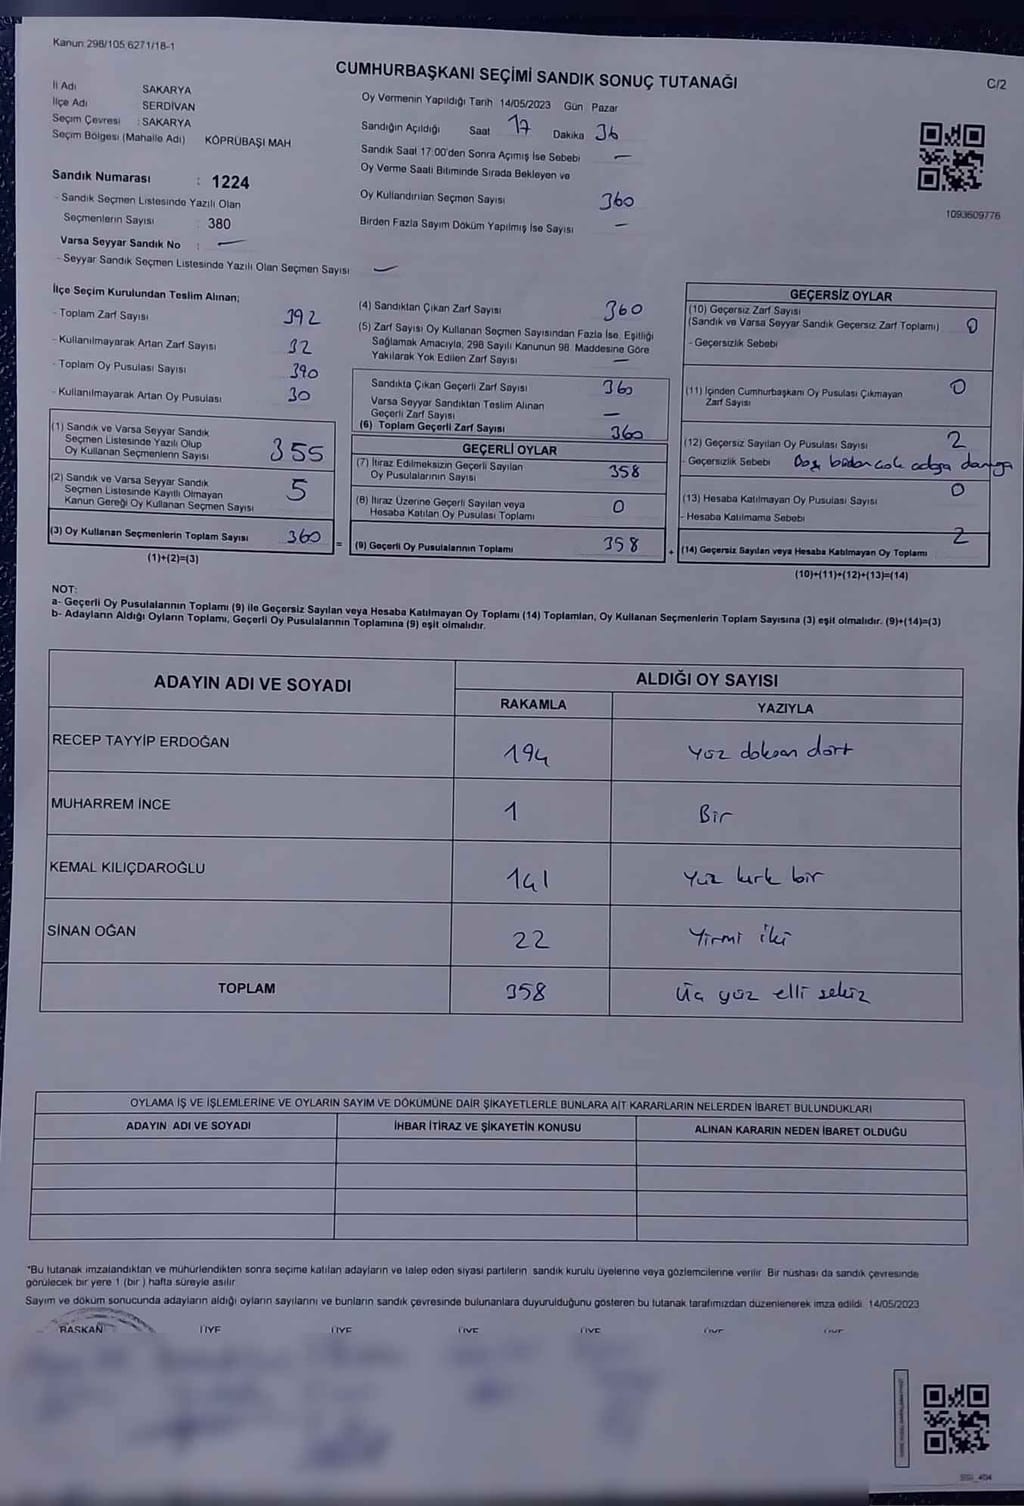 Kanun:298/105,6271/18-1
CUMHURBAŞKANI SEÇİMİ SANDIK SONUÇ TUTANAĞI
C/2
İl Adı SAKARYA
İlçe Adı SERDİVAN
Seçim Çevresi : SAKARYA
Seçim Bölgesi (Mahalle Adı) KÖPRÜBAŞI MAH
Sandık Numarası : 1224
- Sandık Seçmen Listesinde Yazılı Olan
Seçmenlerin Sayısı 380
Varsa Seyyar Sandık No : —
- Seyyar Sandık Seçmen Listesinde Yazılı Olan Seçmen Sayısı —
Oy Vermenin Yapıldığı Tarih 14/05/2023 Gün Pazar
Sandığın Açıldığı Saat 17 Dakika 36
Sandık Saat 17:00'den Sonra Açımış İse Sebebi —
Oy Verme Saati Bitiminde Sırada Bekleyen ve
Oy Kullandırılan Seçmen Sayısı 360
Birden Fazla Sayım Döküm Yapılmış İse Sayısı —
1093609776
İlçe Seçim Kurulundan Teslim Alınan;
- Toplam Zarf Sayısı 392
- Kullanılmayarak Artan Zarf Sayısı 32
- Toplam Oy Pusulası Sayısı 390
- Kullanılmayarak Artan Oy Pusulası 30
(1) Sandık ve Varsa Seyyar Sandık
Seçmen Listesinde Yazılı Olup
Oy Kullanan Seçmenlerin Sayısı 355
(2) Sandık ve Varsa Seyyar Sandık
Seçmen Listesinde Kayıtlı Olmayan
Kanun Gereği Oy Kullanan Seçmen Sayısı 5
(3) Oy Kullanan Seçmenlerin Toplam Sayısı 360
(1)+(2)=(3)
(4) Sandıktan Çıkan Zarf Sayısı 360
(5) Zarf Sayısı Oy Kullanan Seçmen Sayısından Fazla İse, Eşitliği
Sağlamak Amacıyla, 298 Sayılı Kanunun 98. Maddesine Göre
Yakılarak Yok Edilen Zarf Sayısı —
Sandıkta Çıkan Geçerli Zarf Sayısı 360
Varsa Seyyar Sandıktan Teslim Alınan
Geçerli Zarf Sayısı —
(6) Toplam Geçerli Zarf Sayısı 360
GEÇERLİ OYLAR
(7) İtiraz Edilmeksizin Geçerli Sayılan
Oy Pusulalarının Sayısı 358
(8) İtiraz Üzerine Geçerli Sayılan veya
Hesaba Katılan Oy Pusulası Toplamı 0
= (9) Geçerli Oy Pusulalarının Toplamı 358
GEÇERSİZ OYLAR
(10) Geçersiz Zarf Sayısı
(Sandık ve Varsa Seyyar Sandık Geçersiz Zarf Toplamı) 0
- Geçersizlik Sebebi
(11) İçinden Cumhurbaşkanı Oy Pusulası Çıkmayan
Zarf Sayısı 0
(12) Geçersiz Sayılan Oy Pusulası Sayısı 2
- Geçersizlik Sebebi damga
(13) Hesaba Katılmayan Oy Pusulası Sayısı 0
- Hesaba Katılmama Sebebi
+ (14) Geçersiz Sayılan veya Hesaba Katılmayan Oy Toplamı 2
(10)+(11)+(12)+(13)=(14)
NOT:
a- Geçerli Oy Pusulalarının Toplamı (9) ile Geçersiz Sayılan veya Hesaba Katılmayan Oy Toplamı (14) Toplamları, Oy Kullanan Seçmenlerin Toplam Sayısına (3) eşit olmalıdır. (9)+(14)=(3)
b- Adayların Aldığı Oyların Toplamı, Geçerli Oy Pusulalarının Toplamına (9) eşit olmalıdır.
ADAYIN ADI VE SOYADI ALDIĞI OY SAYISI
RAKAMLA YAZIYLA
RECEP TAYYİP ERDOĞAN 194 Yüz doksan dört
MUHARREM İNCE 1 Bir
KEMAL KILIÇDAROĞLU 141 Yüz kırk bir
SİNAN OĞAN 22 Yirmi iki
TOPLAM 358 Üç yüz elli sekiz
OYLAMA İŞ VE İŞLEMLERİNE VE OYLARIN SAYIM VE DÖKÜMÜNE DAİR ŞİKAYETLERLE BUNLARA AİT KARARLARIN NELERDEN İBARET BULUNDUKLARI
ADAYIN ADI VE SOYADI İHBAR İTİRAZ VE ŞİKAYETİN KONUSU ALINAN KARARIN NEDEN İBARET OLDUĞU
*Bu tutanak imzalandıktan ve mühürlendikten sonra seçime katılan adayların ve talep eden siyasi partilerin sandık kurulu üyelerine veya gözlemcilerine verilir. Bir nüshası da sandık çevresinde
görülecek bir yere 1 (bir ) hafta süreyle asılır.
Sayım ve döküm sonucunda adayların aldığı oyların sayılarını ve bunların sandık çevresinde bulunanlara duyurulduğunu gösteren bu tutanak tarafımızdan düzenlenerek imza edildi. 14/05/2023
BAŞKAN ÜYE ÜYE ÜYE ÜYE ÜYE ÜYE